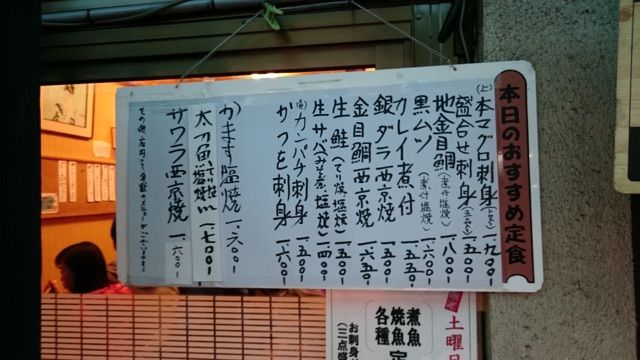 本日のおすすめ定食
(上)本マグロ刺身 一.九〇〇
盛合せ刺身 一.五〇〇
地金目鯛(煮付 塩焼) 一.八〇〇
黒ムツ(煮付 塩焼) 一.六〇〇
カレイ煮付 一.五五〇
銀ダラ西京焼
金目鯛西京焼 一.六五〇
生鮭(てり焼 塩焼) 一.五〇〇
生サバ(みそ煮 塩焼) 一.四〇〇
カンパチ刺身 一.五〇〇
かつを刺身 一.六〇〇
かます塩焼 一.六〇〇
太刀魚塩焼 一.七〇〇
サワラ西京焼 一.六〇〇
土曜
煮魚
焼魚
各種
お刺身
(三点盛